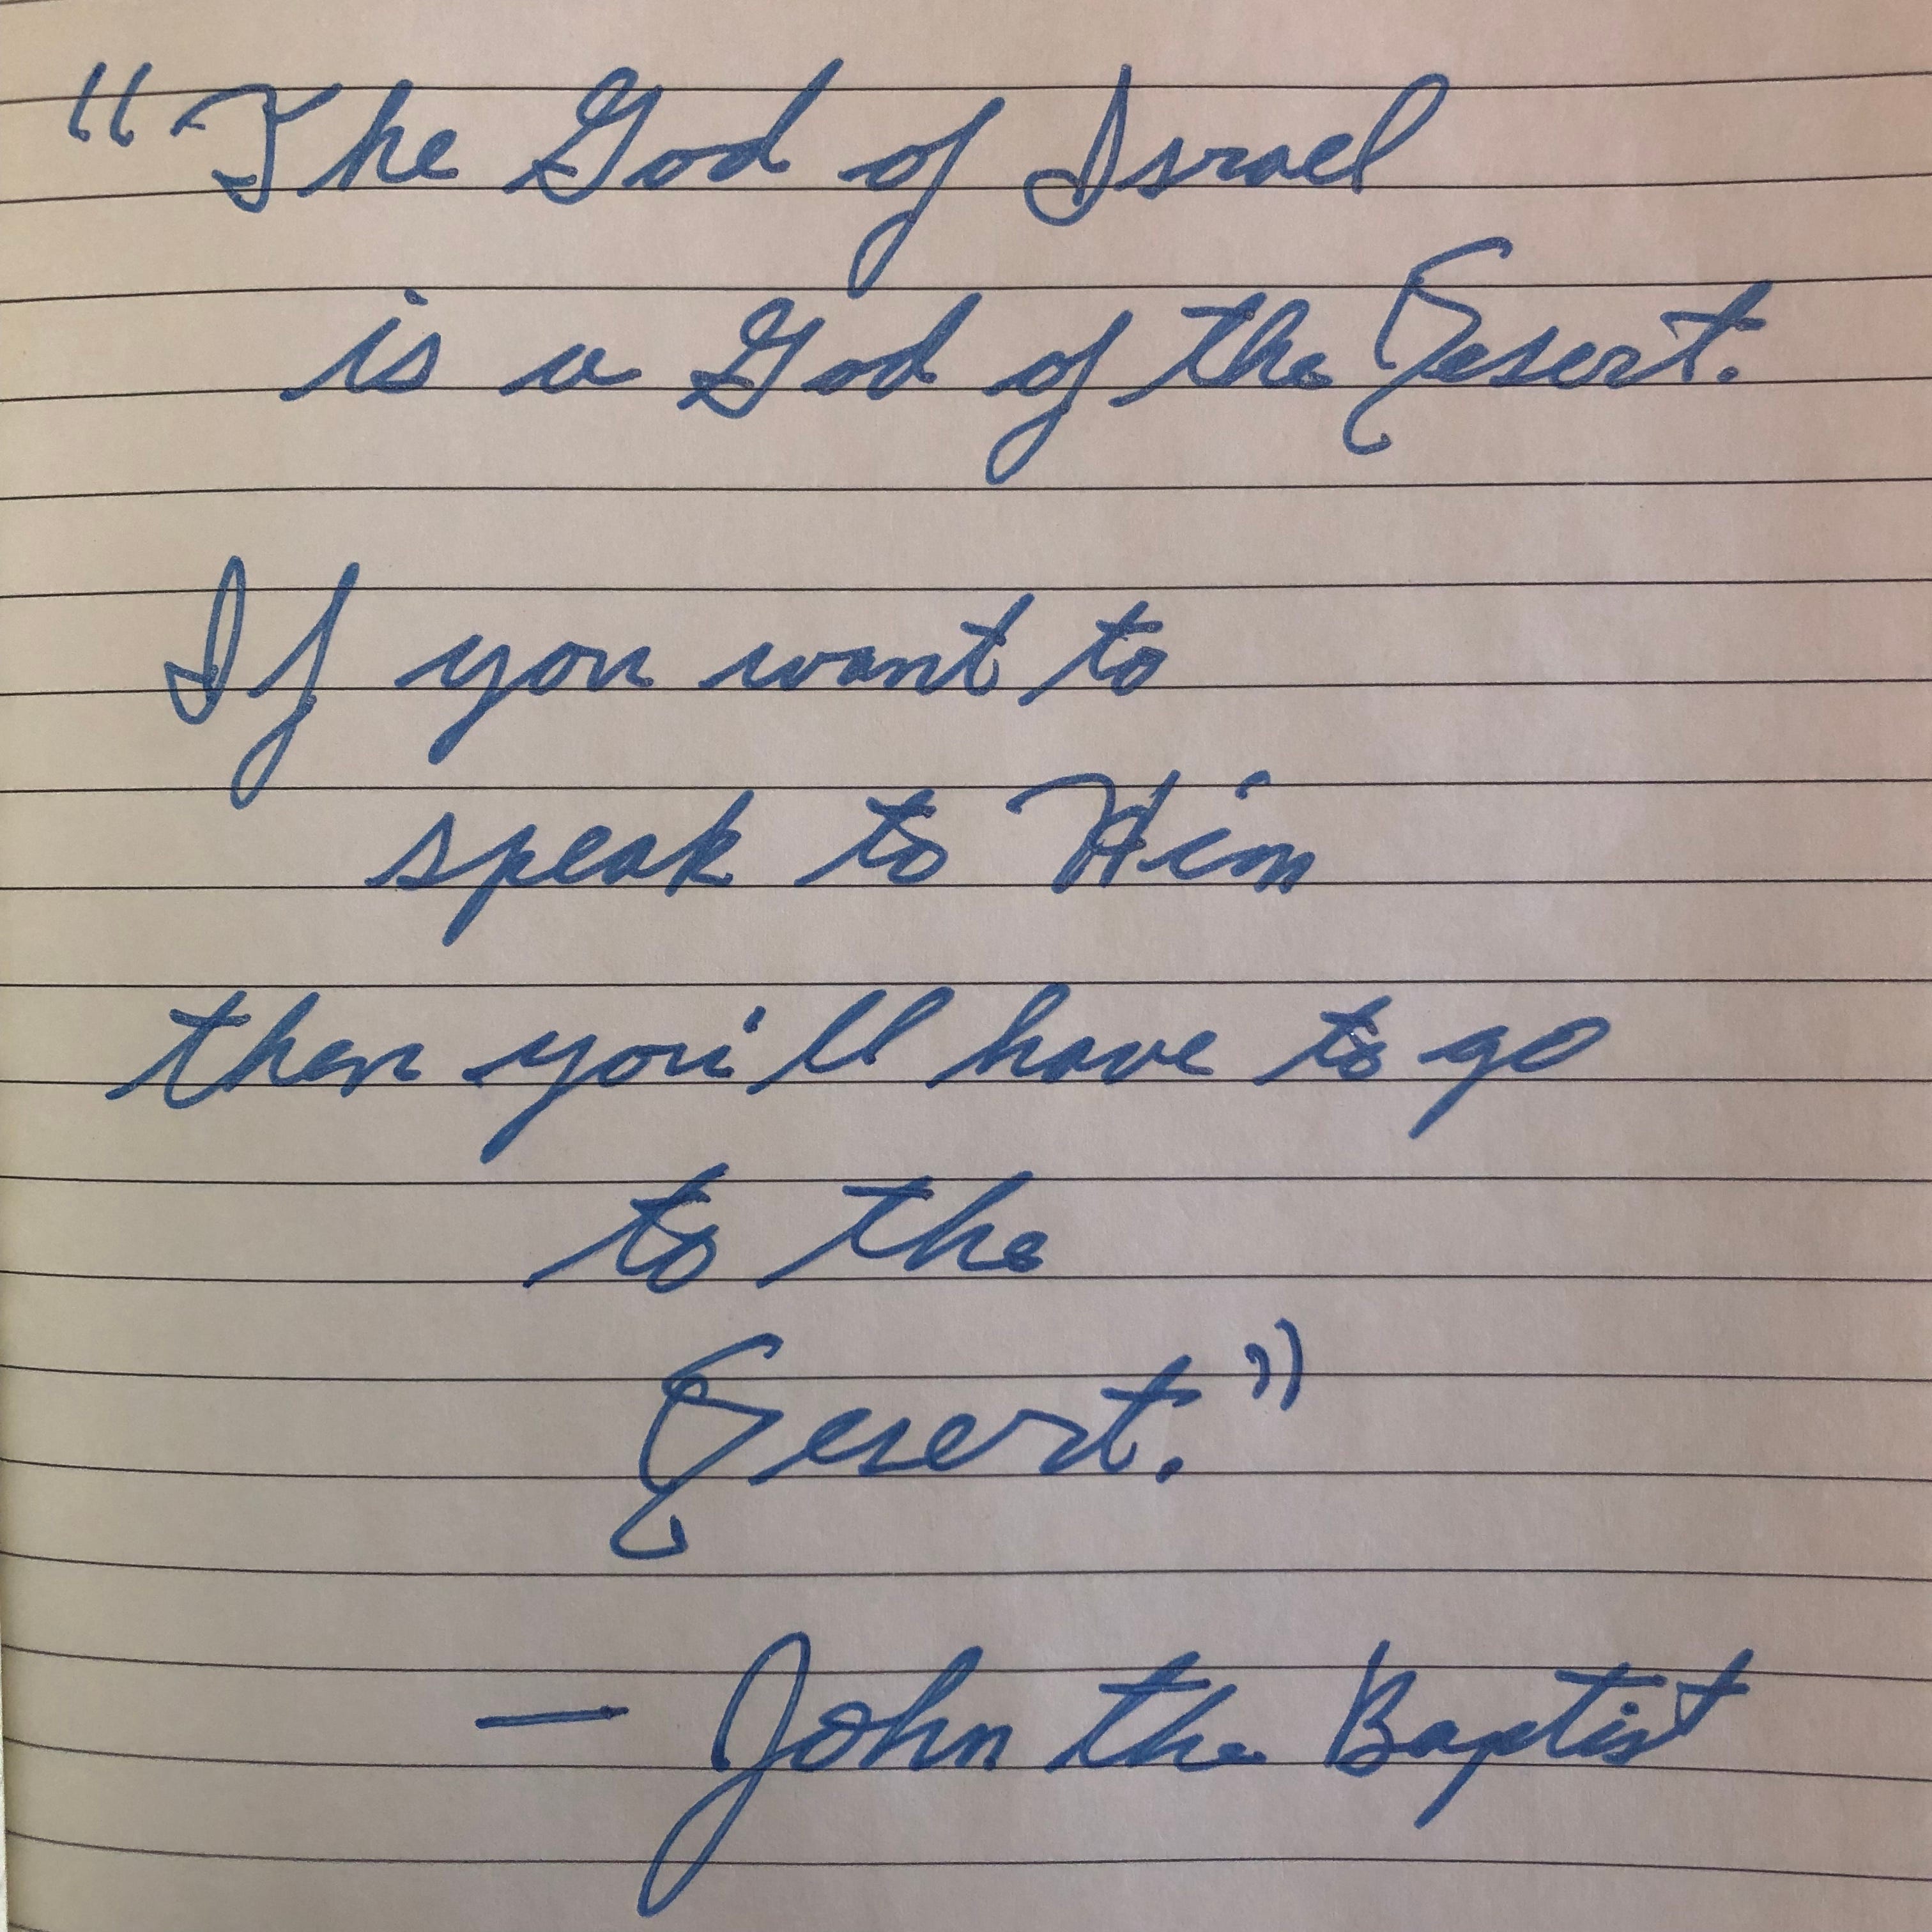 "The God of Israel
is a God of the Desert.
If you want to
speak to Him
then you'll have to go
to the
Desert."
— John the Baptist